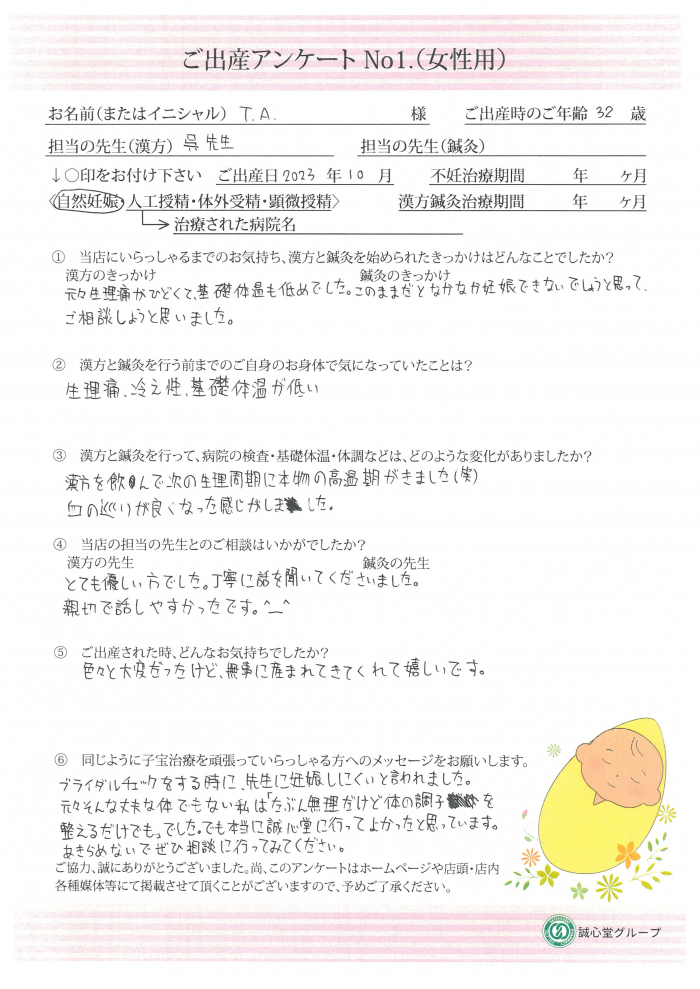 ご出産アンケート No1.(女性用)
お名前(またはイニシャル) T.A. 様 ご出産時のご年齢 32 歳
担当の先生(漢方) 呉先生 担当の先生(鍼灸)
↓○印をお付け下さい ご出産日 2023 年 10 月 不妊治療期間 年 ヶ月
〈自然妊娠・人工授精・体外受精・顕微授精〉 漢方鍼灸治療期間 年 ヶ月
治療された病院名
① 当店にいらっしゃるまでのお気持ち、漢方と鍼灸を始められたきっかけはどんなことでしたか?
漢方のきっかけ 鍼灸のきっかけ
元々生理痛がひどくて、基礎体温も低めでした。このままだとなかなか妊娠できないでしょうと思って、
ご相談しようと思いました。
② 漢方と鍼灸を行う前までのご自身のお身体で気になっていたことは?
生理痛、冷え性、基礎体温が低い
③ 漢方と鍼灸を行って、病院の検査・基礎体温・体調などは、どのような変化がありましたか?
漢方を飲んで次の生理周期に本物の高温期がきました(笑)
血の巡りが良くなった感じがしました。
④ 当店の担当の先生とのご相談はいかがでしたか?
漢方の先生 鍼灸の先生
とても優しい方でした。丁寧に話を聞いてくださいました。
親切で話しやすかったです。^_^
⑤ ご出産された時、どんなお気持ちでしたか?
色々と大変だったけど、無事に産まれてきてくれて嬉しいです。
⑥ 同じように子宝治療を頑張っていらっしゃる方へのメッセージをお願いします。
ブライダルチェックをする時に、先生に妊娠しにくいと言われました。
元々そんな丈夫な体でもない私は「たぶん無理だけど体の調子を
整えるだけでも」でした。でも本当に誠心堂に行ってよかったと思っています。
あきらめないでぜひ相談に行ってみてください。
ご協力、誠にありがとうございました。尚、このアンケートはホームページや店頭・店内
各種媒体等にて掲載させて頂くことがございますので、予めご了承ください。
誠心堂グループ